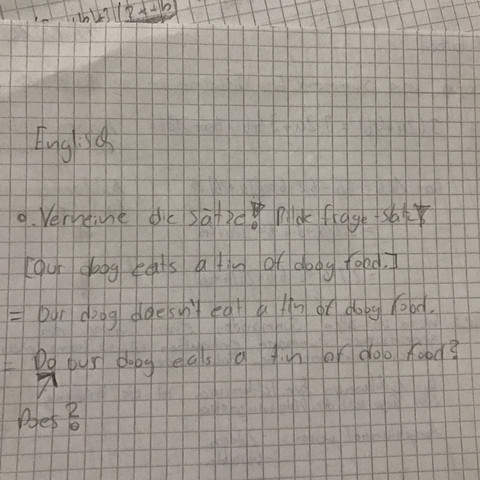 Englisch
o. Verneine die sätze! Bilde frage-sätze!
[Our doog eats a tin of doog food.]
= Our doog doesn't eat a tin of doog food.
= Do our doog eats a tin of doo food?
Does?